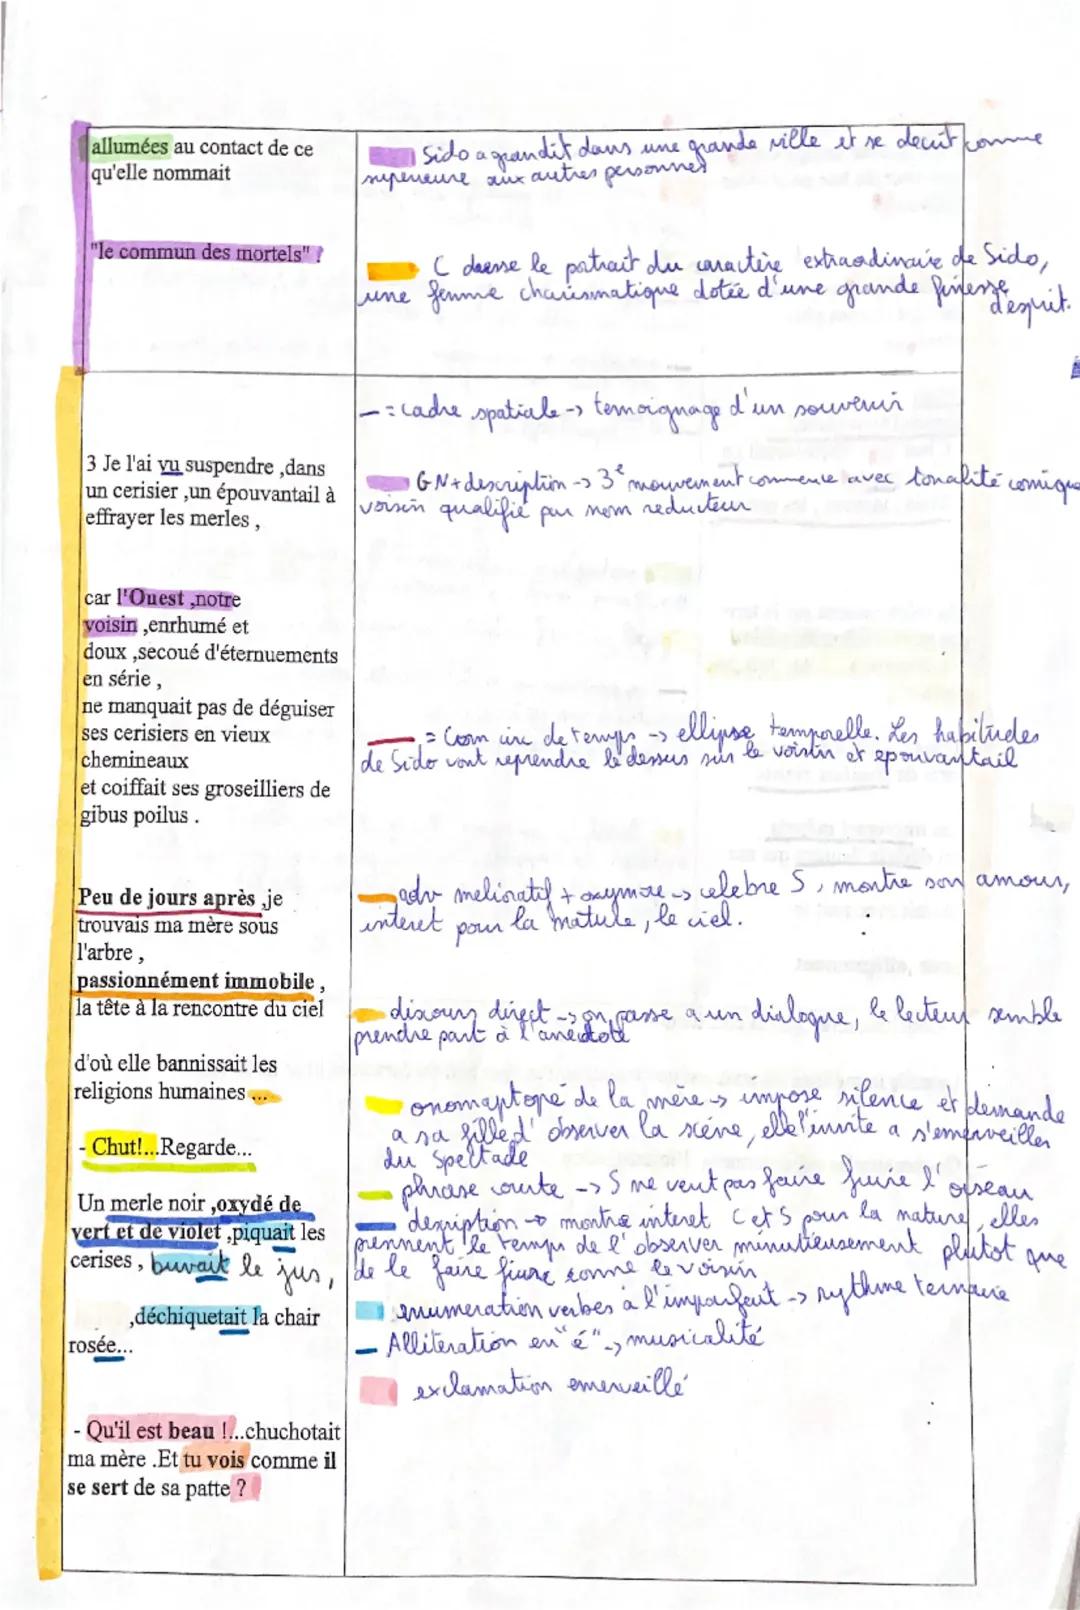 allumées au contact de ce
qu'elle nommait
"le commun des mortels" ?
Sido a grandit dans une grande ville et se decrit comme
superieure aux autres personnes
C dresse le portrait du caractère extraordinaire de Sido,
une femme charismatique dotée d'une grande finesse
d'esprit.
3 Je l'ai vu suspendre ,dans
un cerisier ,un épouvantail à
effrayer les merles ,
car l'Ouest ,notre
voisin ,enrhumé et
doux ,secoué d'éternuements
en série ,
ne manquait pas de déguiser
ses cerisiers en vieux
chemineaux
et coiffait ses groseilliers de
gibus poilus .
Peu de jours après ,je
trouvais ma mère sous
l'arbre ,
passionnément immobile ,
la tête à la rencontre du ciel
d'où elle bannissait les
religions humaines ...
- Chut!...Regarde...
Un merle noir ,oxydé de
vert et de violet ,piquait les
cerises , buvait le jus,
,déchiquetait la chair
rosée...
- Qu'il est beau !...chuchotait
ma mère .Et tu vois comme il
se sert de sa patte ?
= cadre spatiale -> temoignage d'un souvenir
GN+description -> 3e mouvement commence avec tonalité comique
voisin qualifié par nom reducteur
= Com circ de temps -> ellipse temporelle. Les habitudes
de Sido vont reprendre le dessus sur le voisin et epouvantail
adv melioratif + oxymore -> celebre S, montre son amour,
interet pour la nature, le ciel.
discours direct -> on passe a un dialogue, le lecteur semble
prendre part à l'anecdote
onomaptopé de la mère -> impose silence et demande
a sa fille d'observer la scéne, elle l'invite a s'emerveiller
du spectacle
phrase courte -> S ne veut pas faire fuire l'oiseau
description -> montre interet C et S pour la nature, elles
prennent le temps de l'observer minutieusement plutot que
de le faire fiure comme le voisin
enumeration verbes a l'imparfait -> rythme ternaire
Alliteration en "é" -> musicalité
exclamation emerveillé